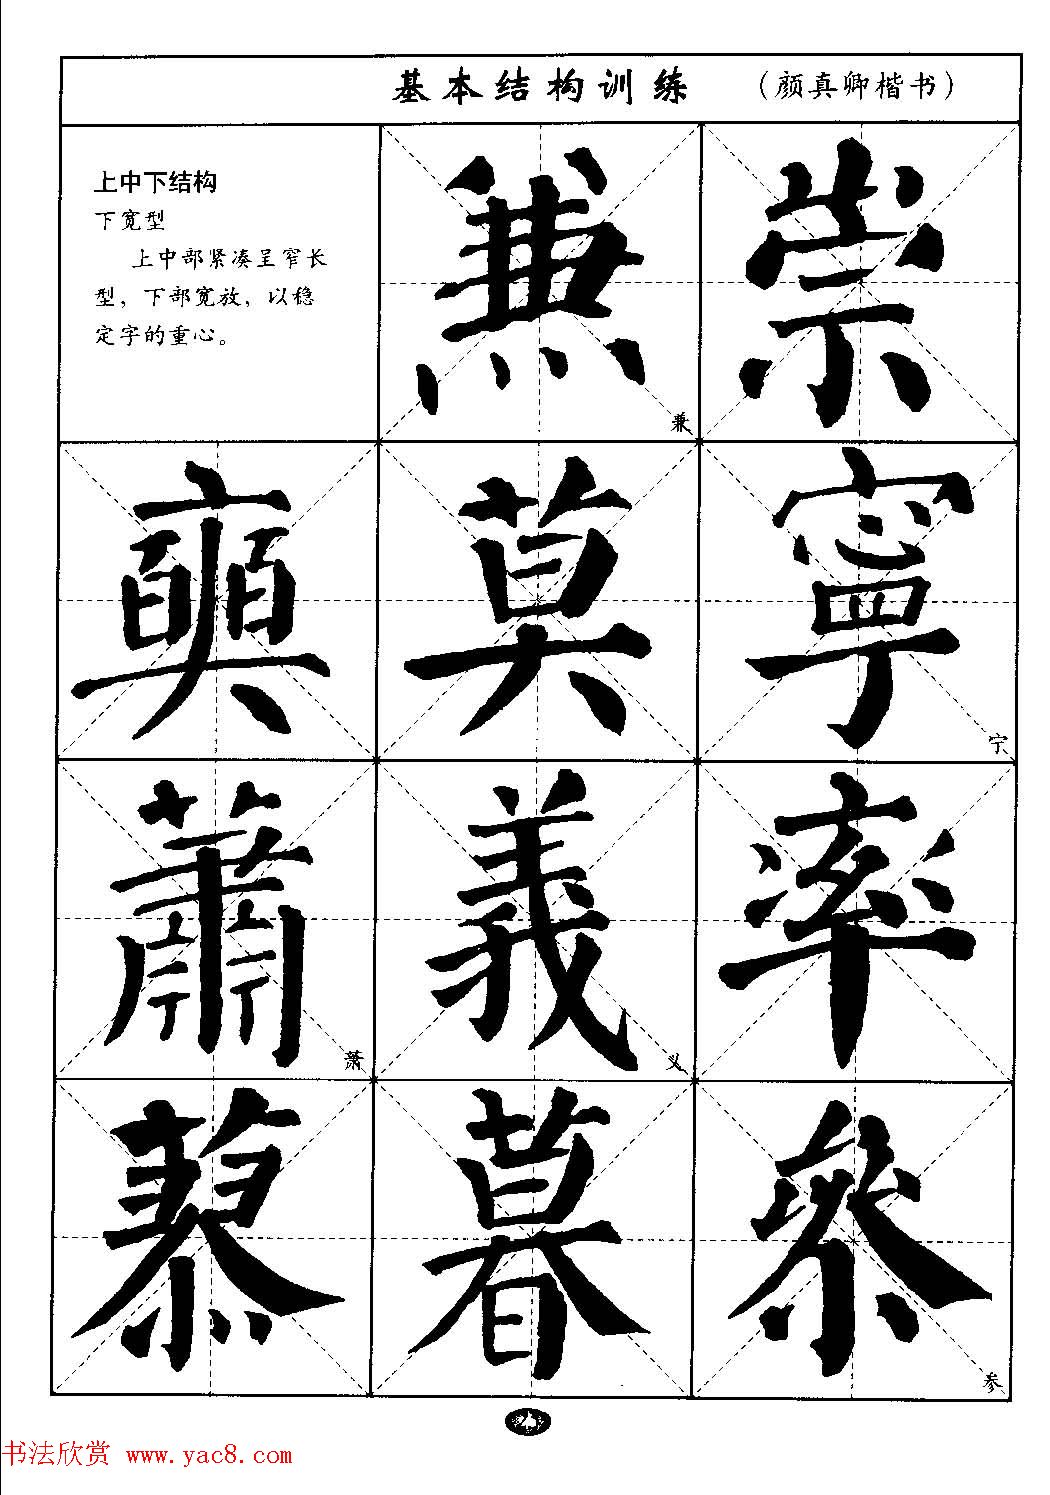 基本结构训练 （颜真卿楷书）
上中下结构
下宽型
上中部紧凑呈窄长
型，下部宽放，以稳
定字的重心。
兼 兼 崇
奭 莫 寧 宁
蕭 萧 義 义 率
暮 参
书法欣赏 www.yac8.com